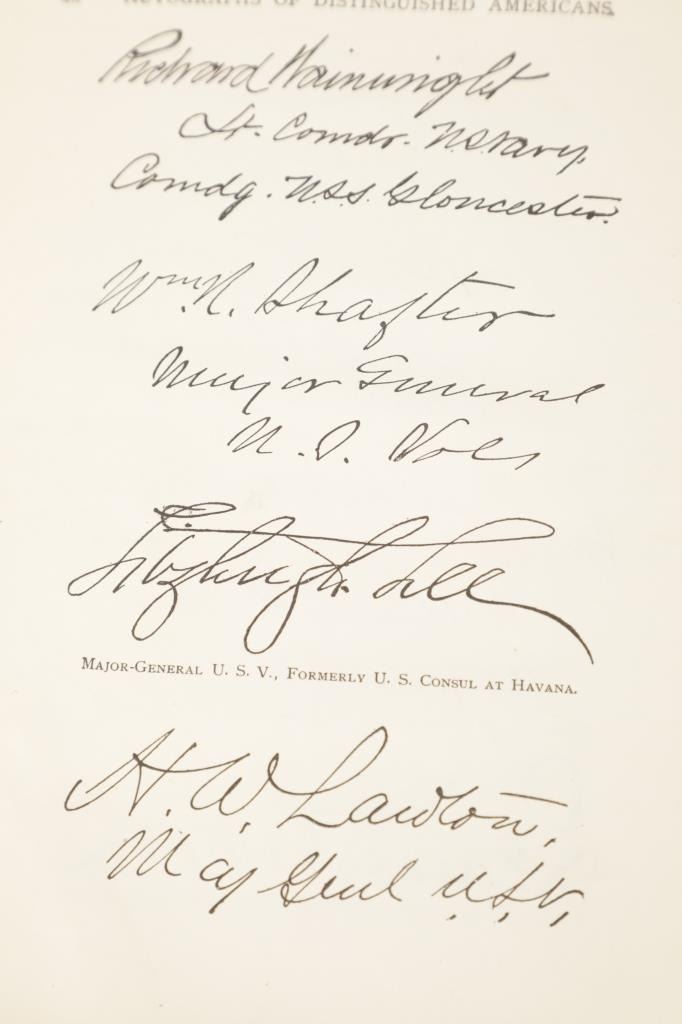 AUTOGRAPHS OF DISTINGUISHED AMERICANS.
Richard Wainwright
Lt. Comdr. U.S. Navy,
Comdg. U.S.S. Gloucester.
Wm. R. Shafter
Major General
U. S. Vols
Fitzhugh Lee
MAJOR-GENERAL U. S. V., FORMERLY U. S. CONSUL AT HAVANA.
H. W. Lawton,
Maj Genl U.S.V,